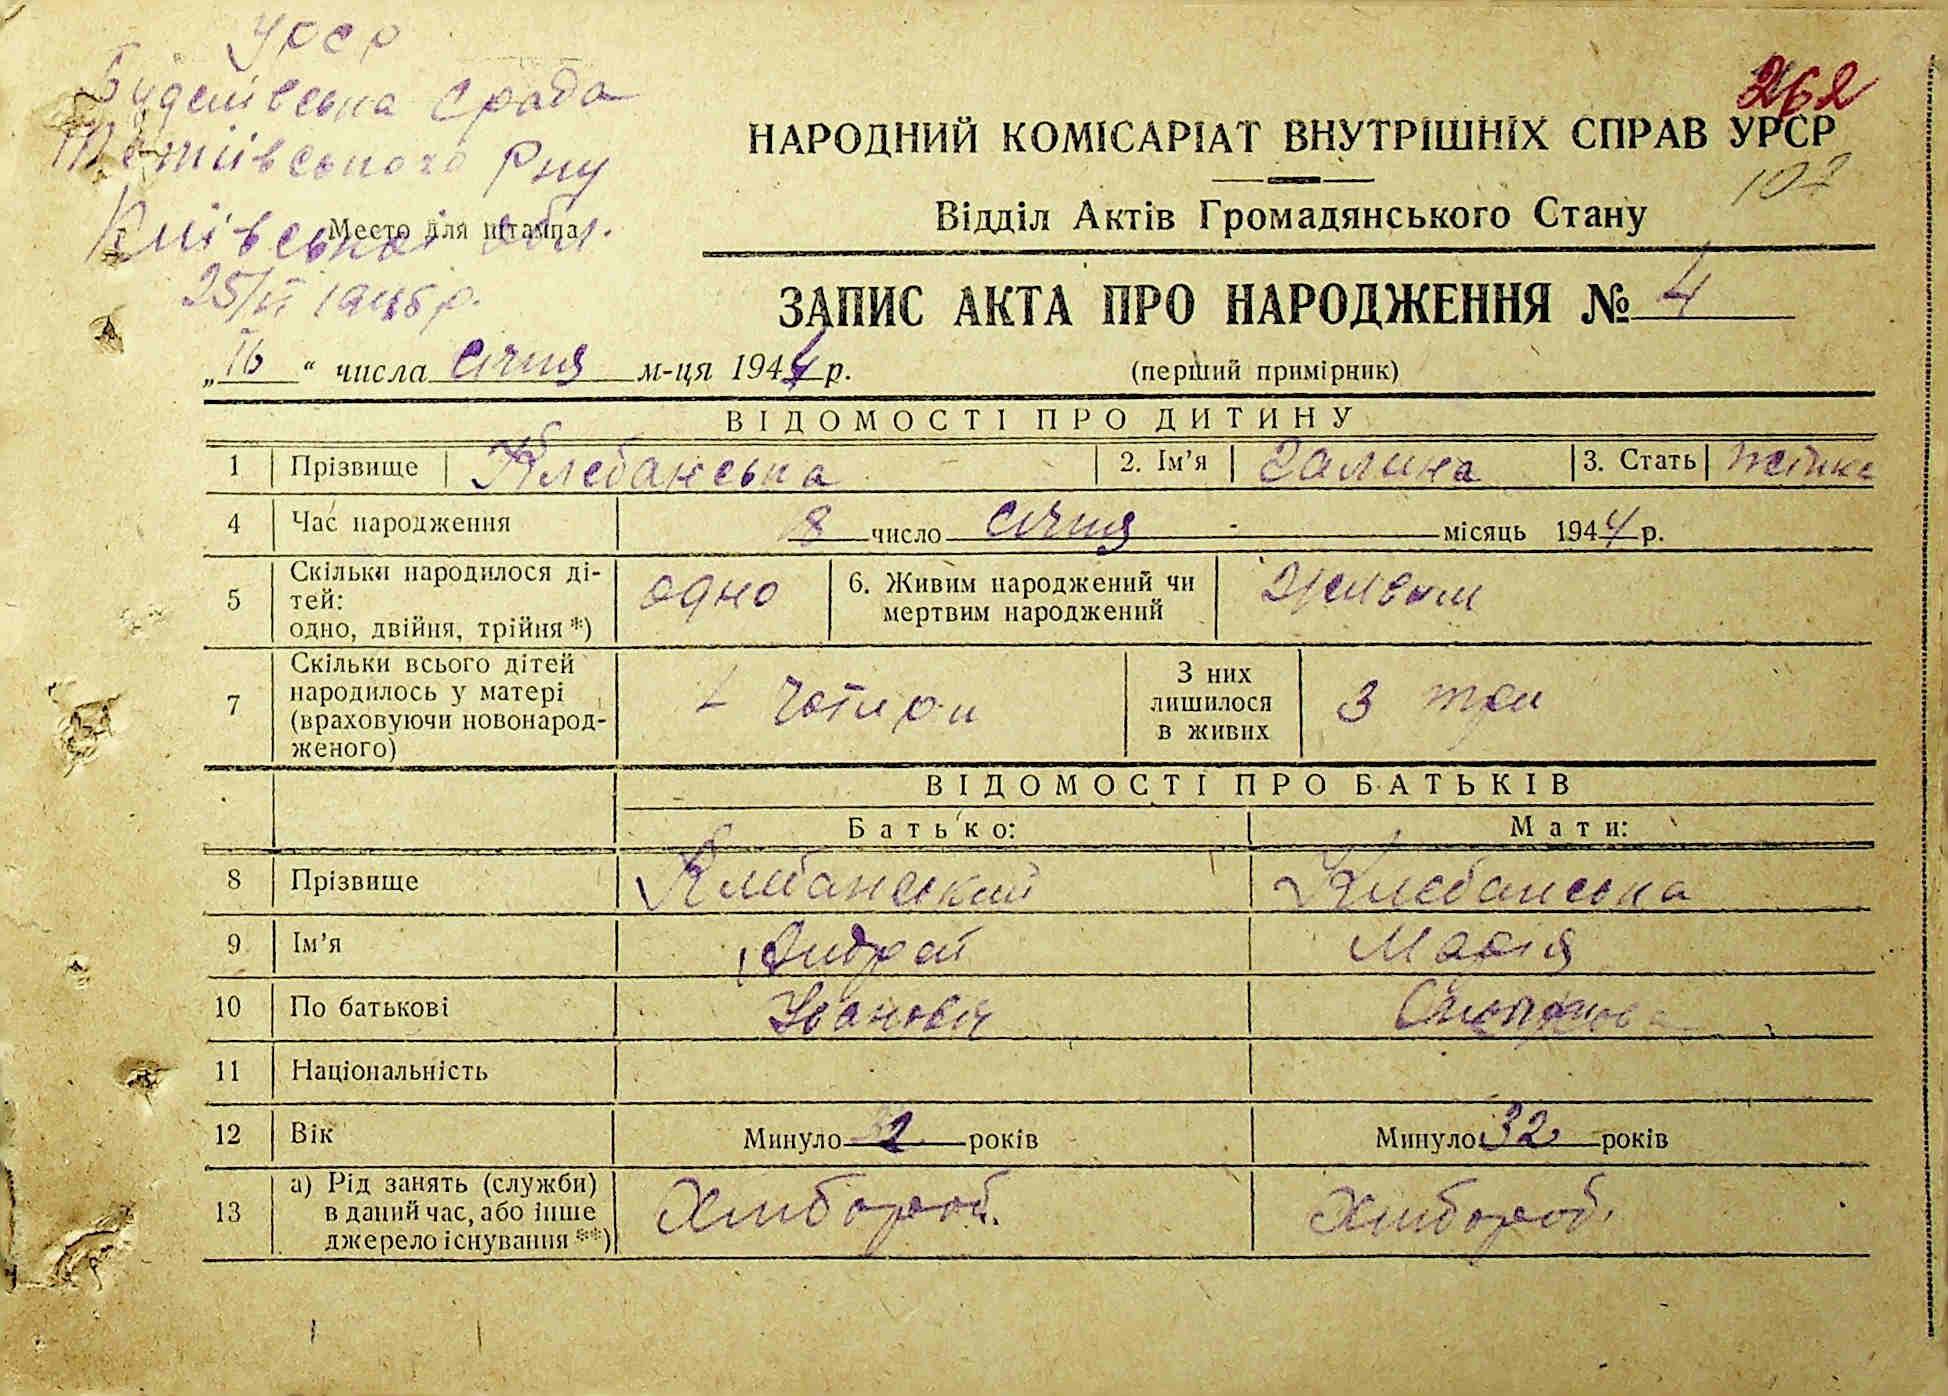 УРСР
с рада
Тетіївського р-ну
Місто для штампа
Київської обл.
25/VI 1945 р.
262
НАРОДНИЙ КОМІСАРІАТ ВНУТРІШНІХ СПРАВ УРСР
102
Відділ Актів Громадянського Стану
ЗАПИС АКТА ПРО НАРОДЖЕННЯ № 4
„16“ числа січня м-ця 1944 р. (перший примірник)
ВІДОМОСТІ ПРО ДИТИНУ
1 Прізвище Клебанська 2. Ім'я Галина 3. Стать
4 Час народження 8 число січня місяць 1944 р.
5 Скільки народилося ді-
тей:
одно, двійня, трійня *)
одно
6. Живим народжений чи
мертвим народжений
живим
7 Скільки всього дітей
народилось у матері
(враховуючи новонарод-
женого)
чотири
З них
лишилося
в живих
3 три
ВІДОМОСТІ ПРО БАТЬКІВ
Батько: Мати:
8 Прізвище Клебанский Клебанська
9 Ім'я Андрей Марія
10 По батькові Іванович
11 Національність
12 Вік Минуло 32 років Минуло 32 років
13 а) Рід занять (служби)
в даний час, або інше
джерело існування **)
Хлибороб. Хлибороб.